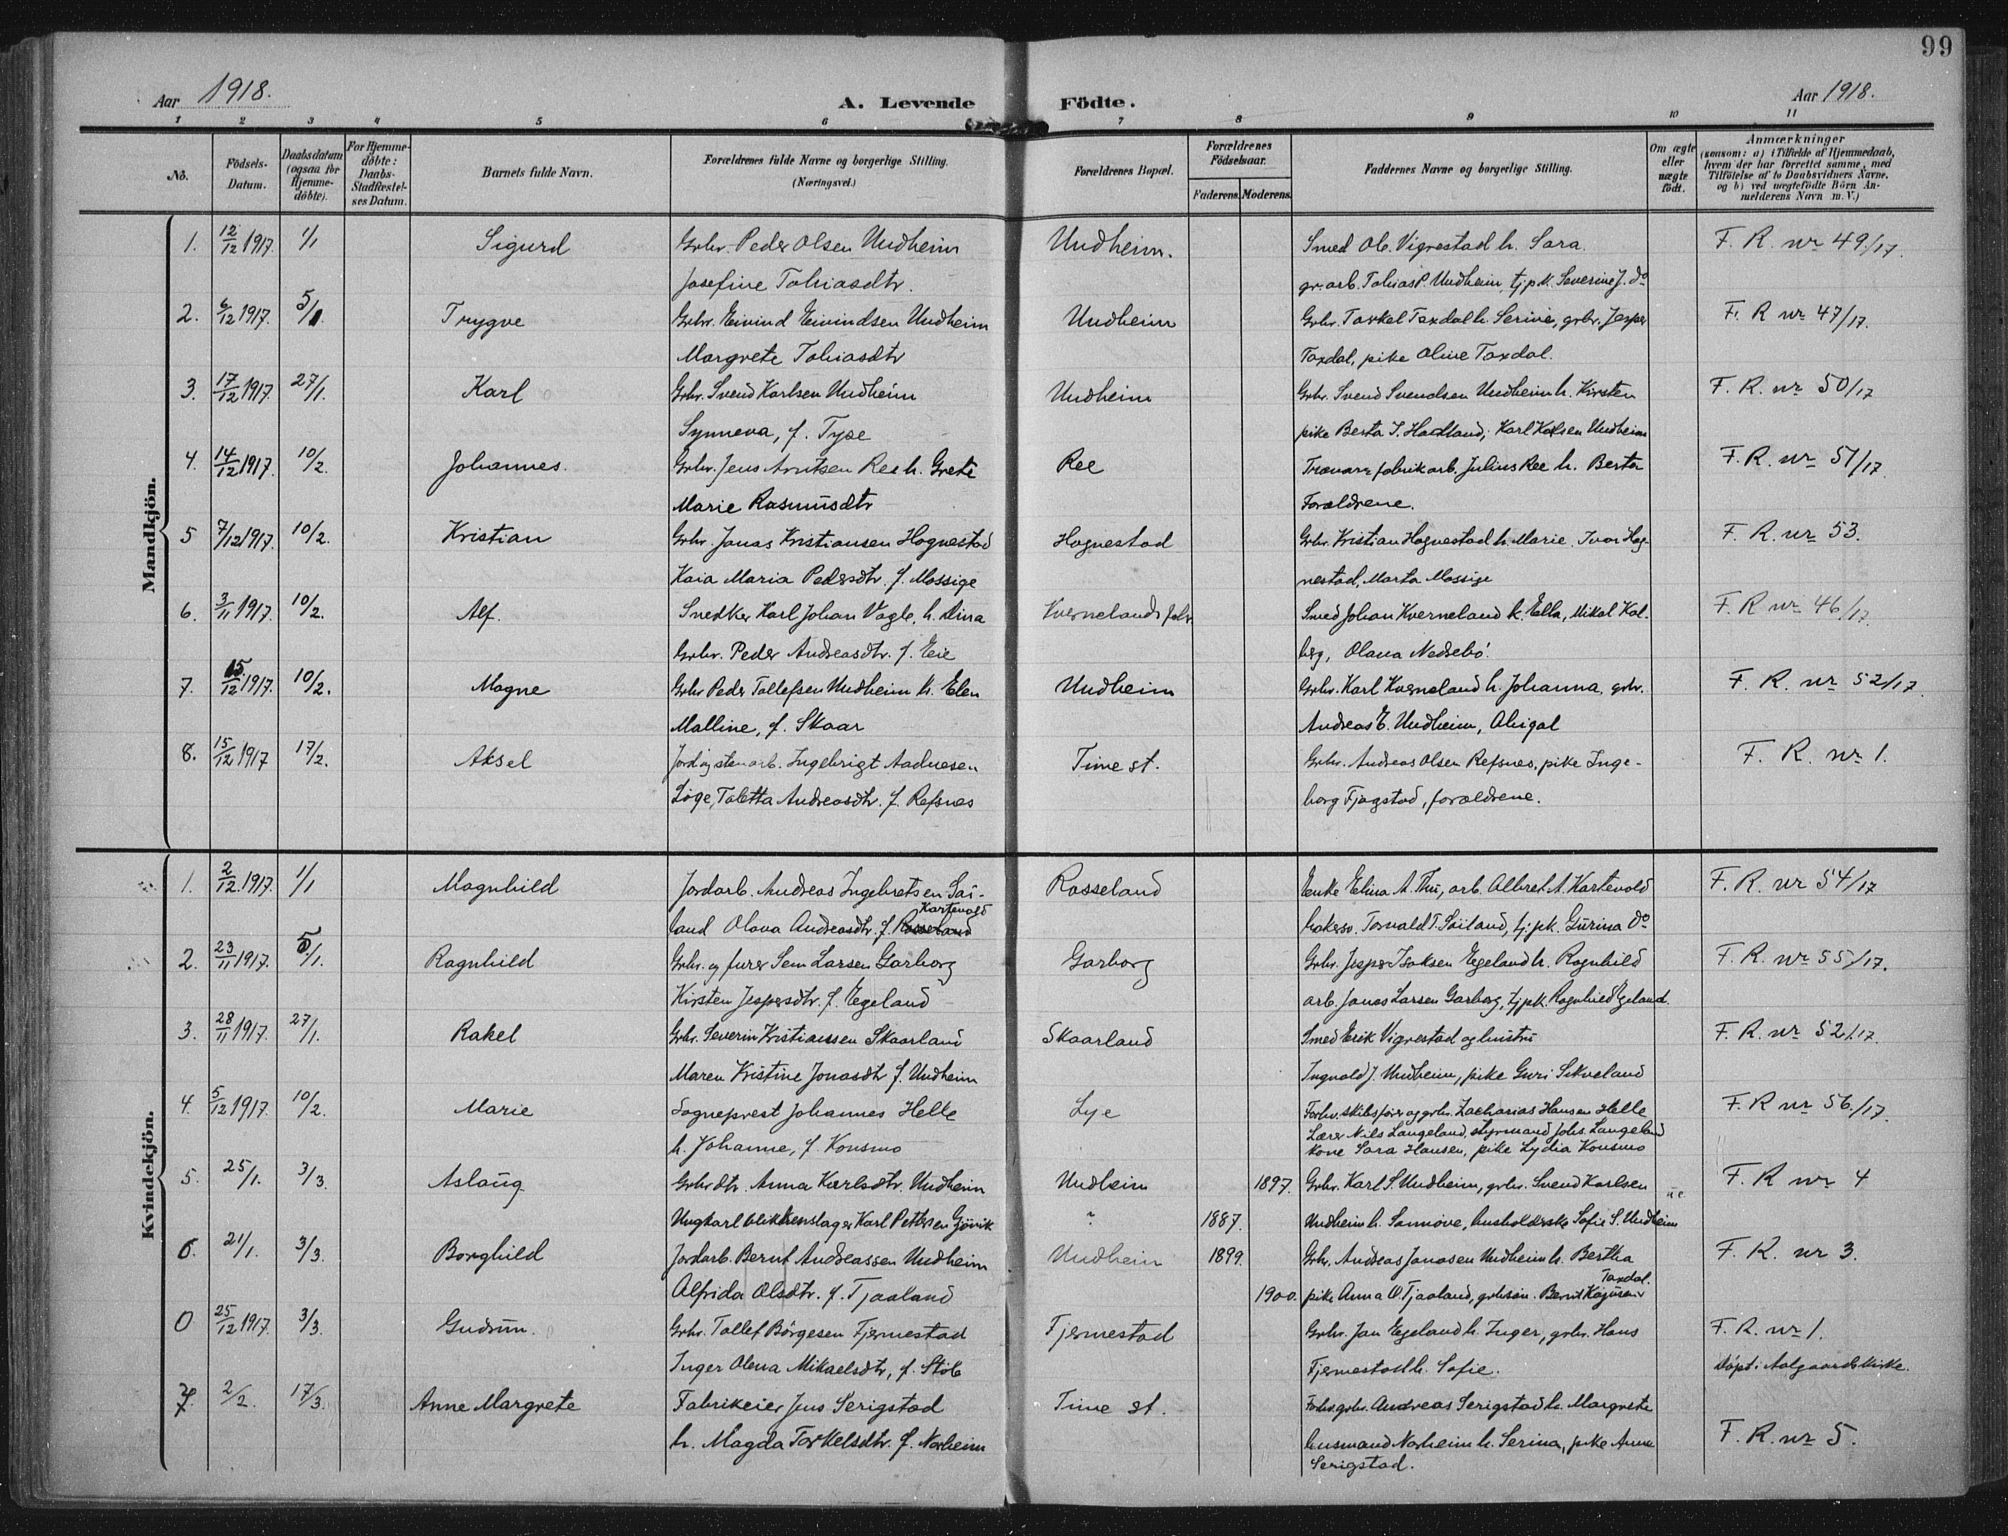 99
Aar 1918.
A. Levende Födte.
Aar 1918.
1 2 3 4 5 6 7 8 9 10 11
No.
Födsels-
Datum.
Daabsdatum
(ogsaa for
Hjemme-
döbte).
For Hjemme-
döbte:
Daabs-
Stadfæstel-
ses Datum.
Barnets fulde Navn.
Forældrenes fulde Navne og borgerlige Stilling.
(Næringsvei.)
Forældrenes Bopæl.
Forældrenes
Födselsaar.
Faderens. Moderens.
Faddernes Navne og borgerlige Stilling.
Om ægte
eller
uægte
födt.
Anmærkninger
(saasom: a) i Tilfælde af Hjemmedaab,
hvem der har forrettet samme, med
Tilföielse af to Daabsvidners Navne,
og b) ved uægtefödte Börn An-
melderens Navn m. V.)
Mandkjön.
1. 12/12 1917. 1/1 Sigurd Grbr. Peder Olsen Undheim Undheim. Smed Ol. Vigrestad h. Sara. F. R. nr 49/17.
Josefine Tobiasdtr. gr. arb. Tobias P. Undheim, tj.pk. Severine J. do
2. 6/12 1917. 5/1. Trygve Grbr. Eivind Eivindsen Undheim Undheim Grbr. Torkel Taxdal h. Serine, grbr. Jesper F. R nr 47/17.
Margrete Tobiasdtr Taxdal, pike Oline Taxdal.
3. 17/12 1917. 27/1. Karl Grbr. Svend Karlsen Undheim Undheim Grbr. Svend Svendsen Undheim h. Kirsten F. R. nr 50/17
Synneva, f. Tyse pike Berta S. Haatland, Karl Karlsen Undheim
4. 14/12 1917. 10/2. Johannes. Grbr. Jens Arntsen Ree h. Grete Ree Trævarefabrikarb. Julius Ree h. Berta F. R. nr 51/17.
Marie Rasmusdtr Forældrene.
5 7/12 1917. 10/2. Kristian Grbr. Jonas Kristiansen Hognestad Hognestad Grbr. Kristian Hognestad h. Marie. Ivar Hog- F. R. nr 53.
Kaia Maria Pedersdtr. f. Mossige nestad, Marta Mossige
6. 3/11 1917. 10/2. Alf. Snedker Karl Johan Vagle, h. Dina Kvernelands fabr Smed Johan Kverneland h. Ella, Mikal Kal- F. R nr 46/17.
Grbr. Peder Andreasdtr. f. Eie berg, Olava Nedrebö.
7. 15/12 1917. 10/2. Magne Grbr Peder Tollefsen Undheim h. Elen Undheim Grbr. Karl Kverneland h. Johanna, grbr. F. R. nr 52/17.
Malline, f. Skaar Andreas E. Undheim, Abigal
8. 15/12 1917 17/2. Aksel Jord og stenarb. Ingebrigt Aadnesen Time st. Grbr. Andreas Olsen Refsnes, pike Inge- F. R. nr 1.
Löge, Taletta Andreasdtr. f. Refsnes borg Fjogstad, forældrene.
Kvindekjön.
1. 2/12. 1917. 1/1 Magnhild Jordarb. Andreas Ingebretsen Sai- Rosseland Enke Elina A. Thu, arb. Albret A. Kartevold F. R. nr 54/17
Kartevold
land Olava Andreasdtr. f. Rosseland Torvald T. Söiland, tj.pk. Gurina do
2. 23/11 1917. 5/1. Ragnhild Grbr. og furer Sem Larsen Garborg Garborg Grbr. Jesper Isaksen Egeland h. Ragnhild F. R. nr 55/17.
Kirsten Jespersdtr. f. Egeland arb. Jonas Larsen Garborg, tj.pk. Ragnhild Egeland.
3. 28/11 1917. 27/1. Rakel Grbr. Severin Kristianssen Skaarland Skaarland Smed Erik Vigrestad og hustru F. R. nr 52/17.
Maren Kristine Jonasdtr f. Undheim Ingvald J. Undheim, pike Guri Sikveland
4. 5/12 1917. 10/2. Marie Sogneprest Johannes Helle Lye Forhv. skibsförer og grbr. Zacharias Hansen Helle F. R nr 56/17.
h. Johanne, f. Konsmo Lærer Nils Langeland, styrmand Johs. Langeland
kone Sara Hansen, pike Lydia Konsmo
5. 25/1. 3/3. Aslaug Grbrdtr. Anna Karlsdtr. Undheim Undheim 1897. Grbr. Karl S. Undheim, grbr. Svend Karlsen ue F. R nr 4
Ungkarl blikkenslager Karl Pettersen Gjövik ? 1887. Undheim h. Sannöve, husholderske Sofie S. Undheim
6. 21/1. 3/3. Borghild Jordarb. Bernt Andreassen Undheim Undheim 1899. Grbr. Andreas Jonasen Undheim h. Bertha F. R. nr 3.
Taxdal.
Alfrida Olsdtr. f. Tjaaland 1900. pike Anna O. Tjaaland, grbrsön. Bernt
0 25/12 1917. 3/3. Gudrun. Grbr. Tollef Börgesen Fjermestad Fjermestad Grbr. Jan Egeland h. Inger, grbr. Hans F. R. nr 1.
Inger Olena Mikaelsdtr, f. Stöle Fjermestad h. Sofie. Döpt i Aalgaards kirke.
7. 2/2. 17/3. Anne Margrete Fabrikeier Jens Serigstad Time st. Forhv. grbr. Andreas Serigstad h. Margrete
h. Magda Torkelsdtr. f. Norheim husmand Norheim h. Serina, pike Anne F. R. nr 5.
Serigstad.